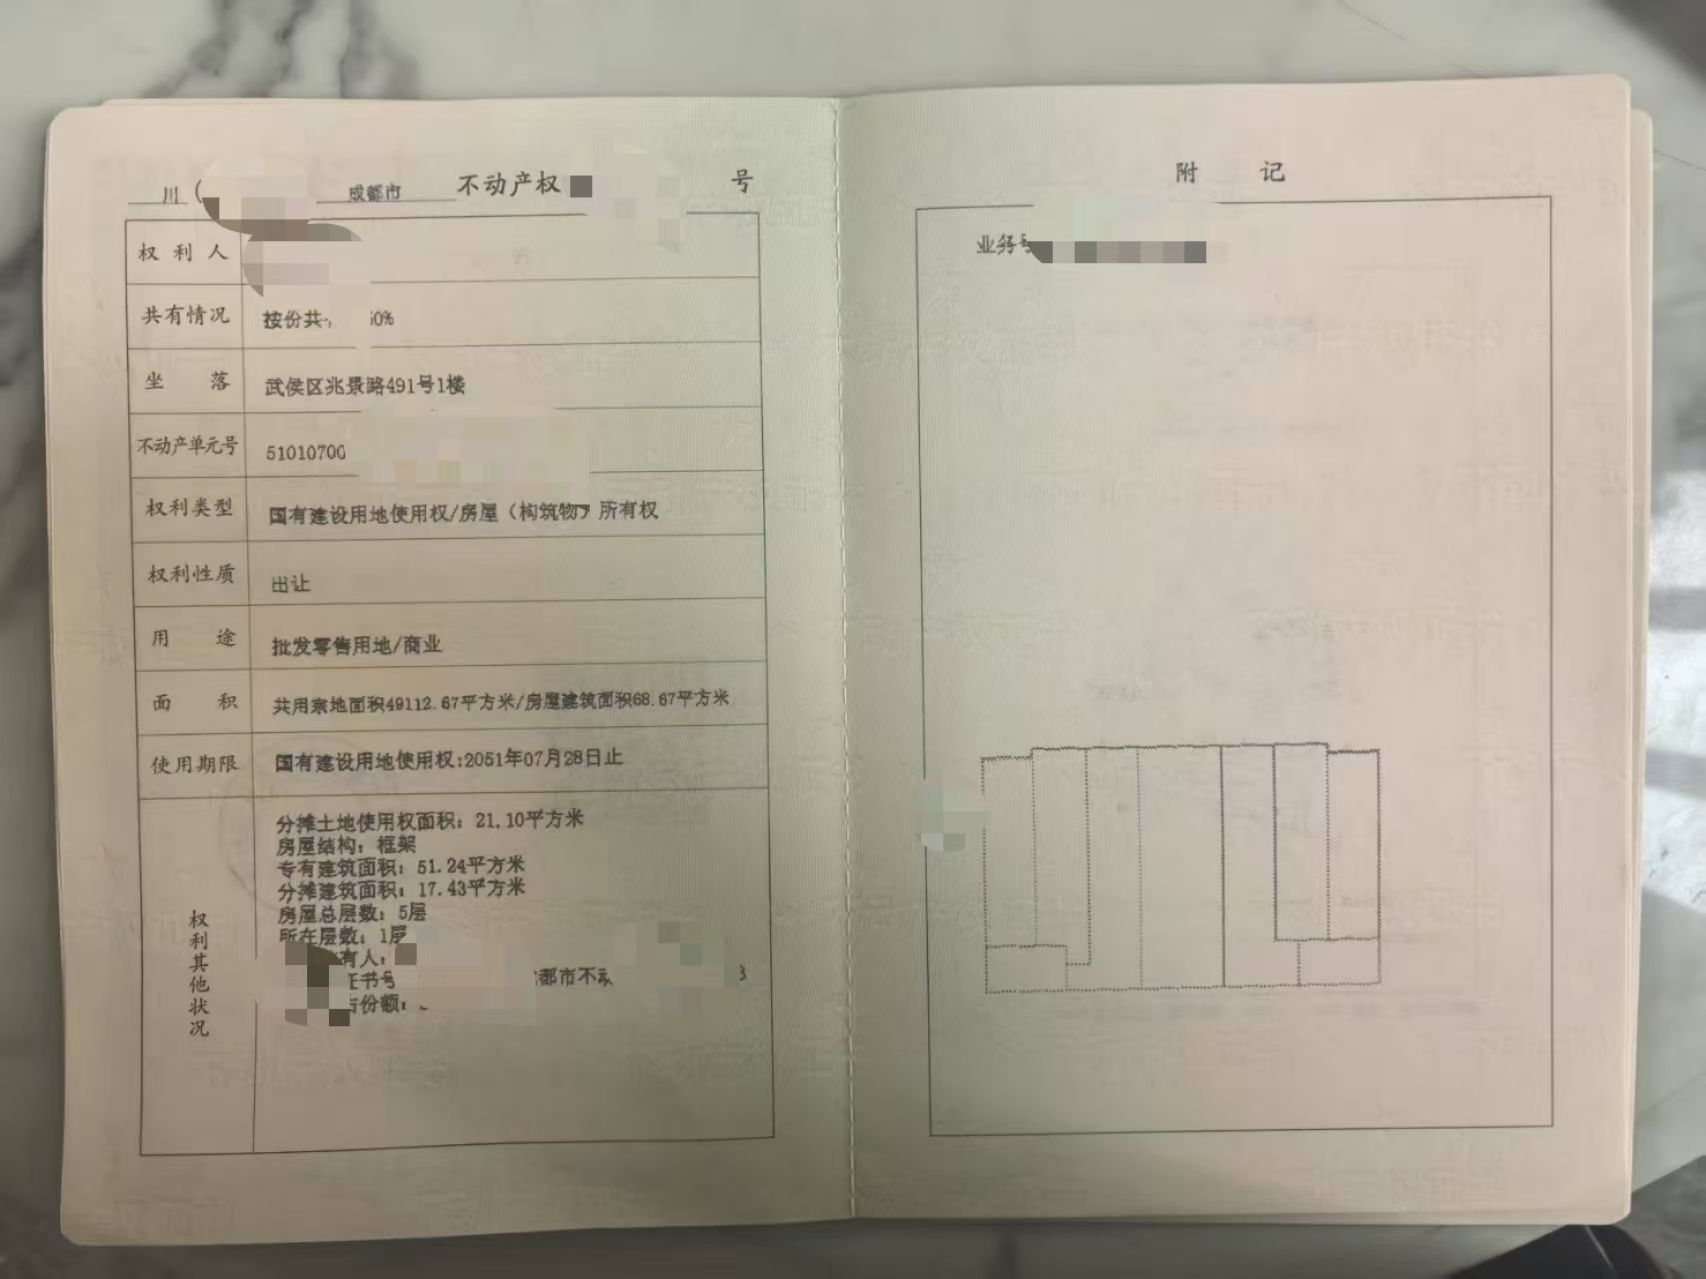 川(
成都市
不动产权
号
权利人
共有情况
按份共
0%
坐落
武侯区兆景路491号1楼
不动产单元号
51010700
权利类型
国有建设用地使用权/房屋（构筑物）所有权
权利性质
出让
用途
批发零售用地/商业
面积
共用宗地面积49112.67平方米/房屋建筑面积68.67平方米
使用期限
国有建设用地使用权:2051年07月28日止
权利其他状况
分摊土地使用权面积：21.10平方米
房屋结构：框架
专有建筑面积：51.24平方米
分摊建筑面积：17.43平方米
房屋总层数：5层
所在层数：1层
有人：
证书号
都市不动
占份额：
附记
业务号